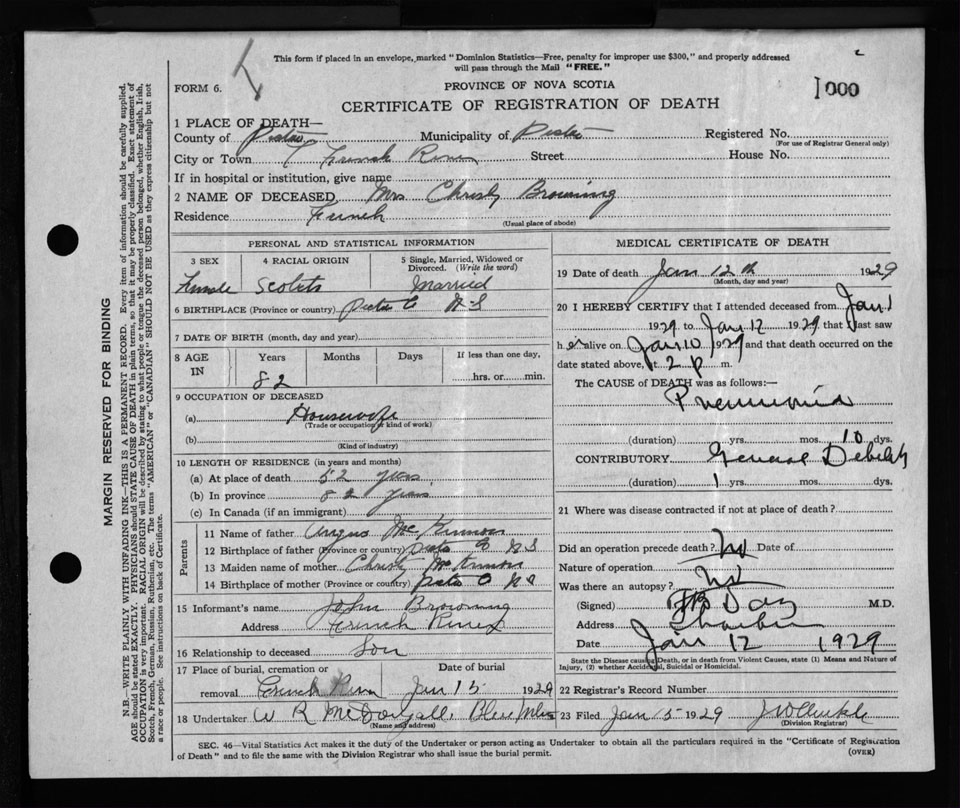 This form if placed in an envelope, marked "Dominion Statistics—Free, penalty for improper use $300," and properly addressed
will pass through the Mail "FREE."
FORM 6.
PROVINCE OF NOVA SCOTIA
1000
CERTIFICATE OF REGISTRATION OF DEATH
1 PLACE OF DEATH—
County of Pictou Municipality of Pictou Registered No.
(For use of Registrar General only)
City or Town French River Street House No.
If in hospital or institution, give name
2 NAME OF DECEASED Mrs Christy Browning
Residence French
(Usual place of abode)
PERSONAL AND STATISTICAL INFORMATION
3 SEX 4 RACIAL ORIGIN 5 Single, Married, Widowed or Divorced. (Write the word)
Female Scotch Married
6 BIRTHPLACE (Province or country) Pictou C N S
7 DATE OF BIRTH (month, day and year)
8 AGE IN Years Months Days If less than one day,
82 hrs. or min.
9 OCCUPATION OF DECEASED
(a) Housewife
(Trade or occupation or kind of work)
(b)
(Kind of industry)
10 LENGTH OF RESIDENCE (in years and months)
(a) At place of death 52 years
(b) In province 82 years
(c) In Canada (if an immigrant)
Parents
11 Name of father Angus McKinnon
12 Birthplace of father (Province or country) Pictou C N S
13 Maiden name of mother Christy McKinnon
14 Birthplace of mother (Province or country) Pictou C N S
15 Informant's name John Browning
Address French River
16 Relationship to deceased Son
17 Place of burial, cremation or Date of burial
removal French River Jan 15 1929
18 Undertaker W R McDougall, Blue Mtn
(Name and address)
MEDICAL CERTIFICATE OF DEATH
19 Date of death Jan 12th 1929
(Month, day and year)
20 I HEREBY CERTIFY that I attended deceased from Jan 1
1929 to Jan 12 1929 that I last saw
her alive on Jan 10 1929 and that death occurred on the
date stated above, at 2 p m.
The CAUSE of DEATH was as follows:—
Pneumonia
(duration) yrs. mos. 10 dys.
CONTRIBUTORY General Debility
(duration) 1 yrs. mos. dys.
21 Where was disease contracted if not at place of death?
Did an operation precede death? No Date of
Nature of operation
Was there an autopsy? No
(Signed) Day M.D.
Address
Date Jan 12 1929
State the Disease causing Death, or in death from Violent Causes, state (1) Means and Nature of
Injury, (2) whether Accidental, Suicidal or Homicidal.
22 Registrar's Record Number
23 Filed Jan 15 1929
(Division Registrar)
SEC. 46—Vital Statistics Act makes it the duty of the Undertaker or person acting as Undertaker to obtain all the particulars required in the "Certificate of Registration
of Death" and to file the same with the Division Registrar who shall issue the burial permit.
(OVER)
MARGIN RESERVED FOR BINDING
N.B.—WRITE PLAINLY WITH UNFADING INK—THIS IS A PERMANENT RECORD. Every item of information should be carefully supplied.
AGE should be stated EXACTLY. PHYSICIANS should STATE CAUSE OF DEATH in plain terms, so that it may be properly classified. Exact statement of
OCCUPATION is very important. RACIAL ORIGIN will be described by stating to what people or tongue the deceased person belonged, whether English, Irish,
Scotch, French, German, Russian, Ruthenian, etc. The terms "AMERICAN" or "CANADIAN" SHOULD NOT BE USED as they express citizenship but not
a race or people. See instructions on back of Certificate.